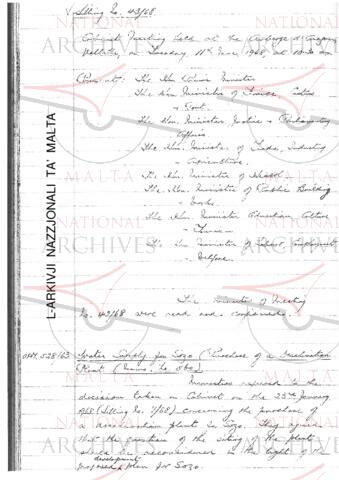 Sitting No. 43/68
Cabinet Meeting held at the Auberge d'Aragon
Valletta, on Tuesday 11th June, 1968, at 10.00 am
Present: The Hon. Prime Minister
The Hon. Minister of Finance, Customs
& Port.
The Hon. Minister Justice & Parliamentary
Affairs
The Hon. Minister of Trade, Industry
& Agriculture.
The Hon. Minister of Health
The Hon. Minister of Public Building
& Works.
The Hon. Minister Education, Culture
& Tourism
The Hon. Minister of Labour, Employment
& Welfare.
The Minutes of Meeting
No. 42/68 were read and confirmed.
OPM. 528/63 Water Supply for Gozo (Purchase of a Desalination
Plant (Memo. No.
Ministers referred to the
decision taken in Cabinet on the 23rd January
1968 (Sitting No. 7/68) concerning the purchase of
a desalination plant for Gozo. They agreed
that the question of the siting of the plant
should be reconsidered in the light of the
proposed development plan for Gozo.
L-ARKIVJI NAZZJONALI TA' MALTA
NATIONAL
ARCHIVES
MALTA